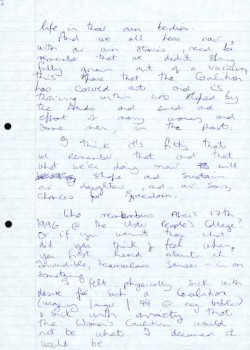 life in their own bodies.
And we all here now,
with our own stories, need to
remember that we didn't spring
fully grown out of a vacuum
this space that the Coalition
has carved out and is
thriving within was shaped by
the and
effort of many women, and
some men, in the past.
I think it's fitting that
we remember that and that
what we're doing now will
shape and sustain
our daughters, and our sons,
chances for freedom.
Who remembers April 17th
1996 @ the Ulster People's College?
Or if you weren't there what
did you think & feel when
you first heard about it.
in on
something
I felt physically sick with
desire for such a Coalition
& sick with anxiety that
the Women's Coalition would
not be what I dreamed it
would be.